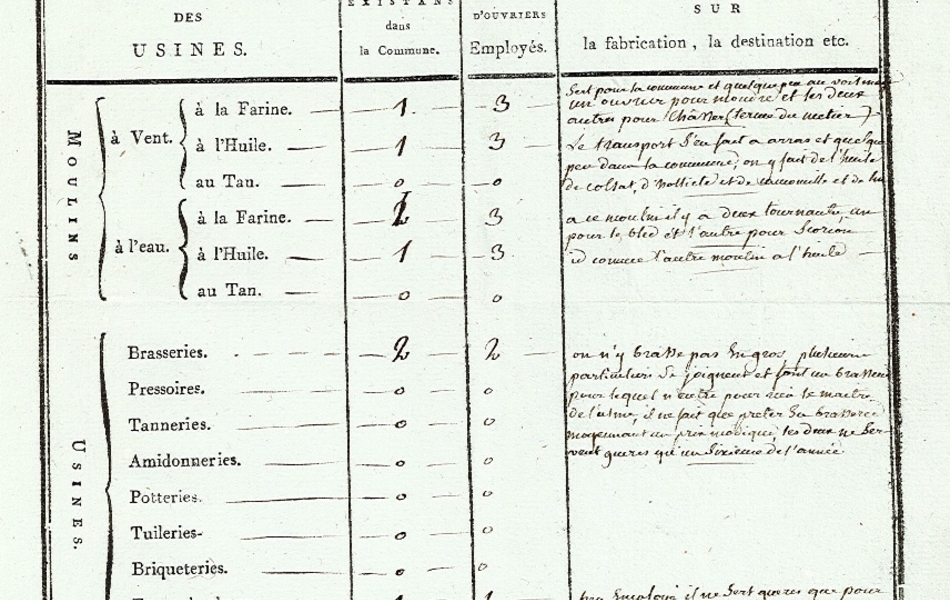 DES
USINES.
EXISTANS
dans
la Commune.
D'OUVRIERS
Employés.
SUR
la fabrication, la destination etc.
MOULINS
à Vent.
à la Farine. 1. 3
Sert pour la commune et quelque peu au voisinage
un ouvrier pour moudre et les deux
autres pour Chasser (terme du metier)
à l'Huile. 1 3
Le transport S'en fait a arras et quelque
peu dans la commune; on y fait de l'huile
de colsat, d'
au Tan. 0 0
à l'eau.
à la Farine. 3
a ce moulin il y a deux tournants, un
pour le bled et l'autre pour Scorion
à l'Huile. 1 3
id comme l'autre moulin a l'huile
au Tan. 0 0
USINES.
Brasseries. 2 2
on n'y brasse pas en gros, plusieurs
particuliers se joignent et font un brassin
pour lequel n'entre pour rien le maitre
de l'usine, il ne fait que preter Sa brasserie
moyennant un prix modique, les deux ne Ser-
vent gueres qu'un Sixieme de l'année
Pressoires. 0 0
Tanneries. 0 0
Amidonneries. 0 0
Potteries. 0 0
Tuileries- 0 0
Briqueteries. 0 0
il ne Sert gueres que pour